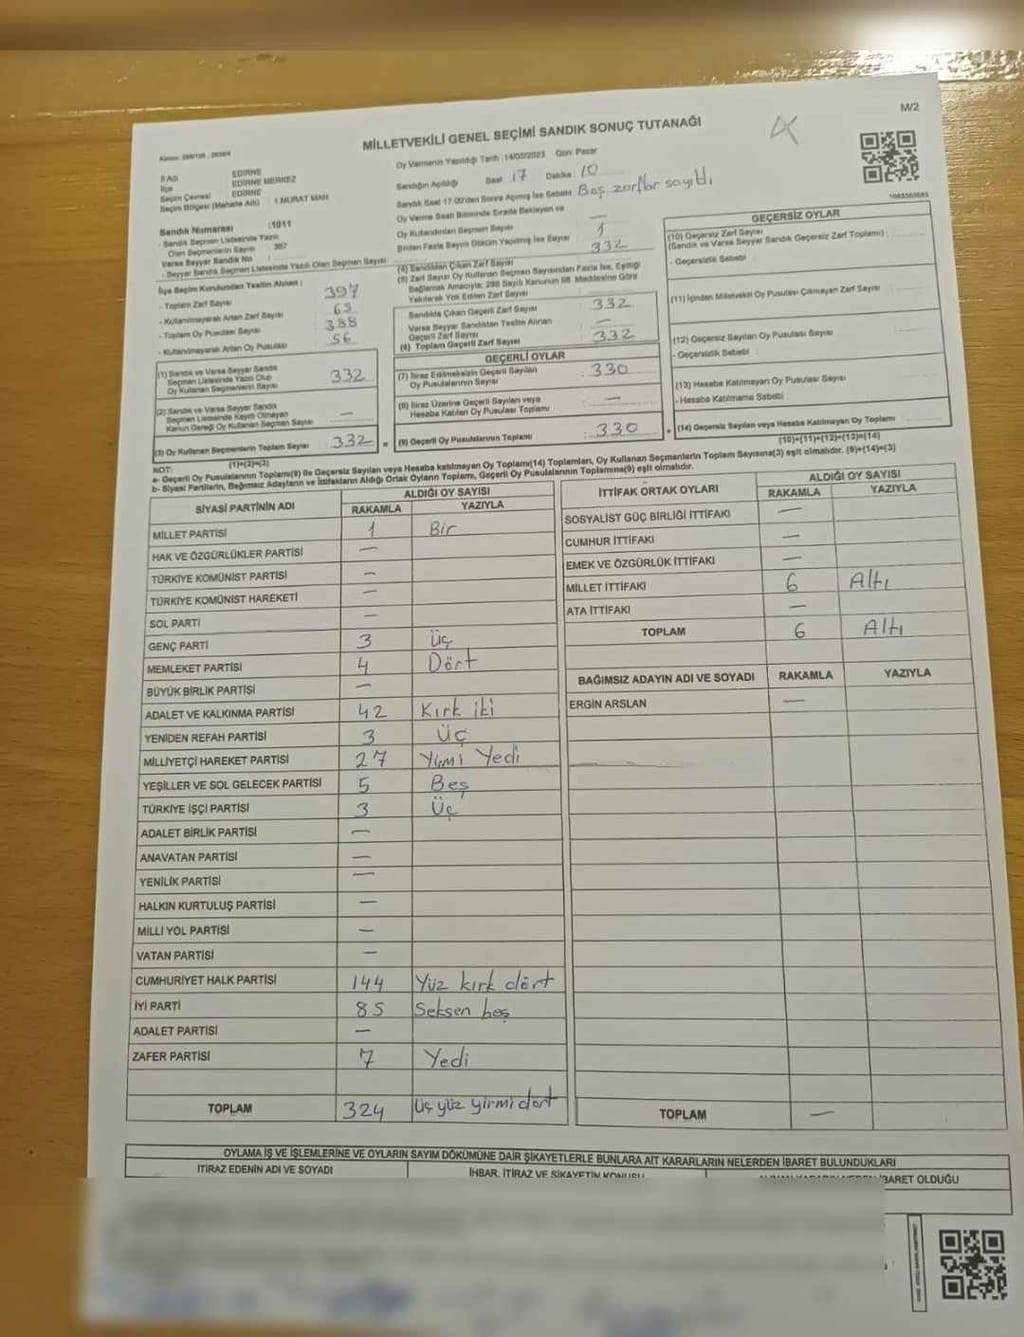 M/2
MİLLETVEKİLİ GENEL SEÇİMİ SANDIK SONUÇ TUTANAĞI
Oy Vermenin Yapıldığı Tarih : 14/05/2023 Gün: Pazar
İl Adı EDİRNE
İlçe EDİRNE MERKEZ
Seçim Çevresi EDİRNE
Seçim Bölgesi (Mahalle Adı) : 1.MURAT MAH
Sandığın Açıldığı Saat 17 Dakika : 10
Sandık Saat 17.00'den Sonra Açılmış İse Sebebi: Boş zarflar sayıldı
Oy Verme Saati Bitiminde Sırada Bekleyen ve
Oy Kullandırılan Seçmen Sayısı —
Birden Fazla Sayım Döküm Yapılmış İse Sayısı : 1
Sandık Numarası :1011
- Sandık Seçmen Listesinde Yazılı
Olan Seçmenlerin Sayısı : 397
Varsa Seyyar Sandık No
- Seyyar Sandık Seçmen Listesinde Yazılı Olan Seçmen Sayısı
İlçe Seçim Kurulundan Teslim Alınan :
- Toplam Zarf Sayısı 397
- Kullanılmayarak Artan Zarf Sayısı 65
- Toplam Oy Pusulası Sayısı 388
- Kullanılmayarak Artan Oy Pusulası 56
(1) Sandık ve Varsa Seyyar Sandık
Seçmen Listesinde Yazılı Olup
Oy Kullanan Seçmenlerin Sayısı 332
(2) Sandık ve Varsa Seyyar Sandık
Seçmen Listesinde Kaydı Olmayan
Kanun Gereği Oy Kullanan Seçmen Sayısı —
(3) Oy Kullanan Seçmenlerin Toplam Sayısı 332
(1)+(2)=(3)
(4) Sandıktan Çıkan Zarf Sayısı 332
(5) Zarf Sayısı Oy Kullanan Seçmen Sayısından Fazla İse, Eşitliği
Sağlamak Amacıyla; 298 Sayılı Kanunun 98. Maddesine Göre
Yakılarak Yok Edilen Zarf Sayısı
Sandıkta Çıkan Geçerli Zarf Sayısı : 332
Varsa Seyyar Sandıktan Teslim Alınan
Geçerli Zarf Sayısı : —
(6) Toplam Geçerli Zarf Sayısı : 332
GEÇERLİ OYLAR
(7) İtiraz Edilmeksizin Geçerli Sayılan
Oy Pusulalarının Sayısı : 330
(8) İtiraz Üzerine Geçerli Sayılan veya
Hesaba Katılan Oy Pusulası Toplamı : —
= (9) Geçerli Oy Pusulalarının Toplamı : 330
GEÇERSİZ OYLAR
(10) Geçersiz Zarf Sayısı
(Sandık ve Varsa Seyyar Sandık Geçersiz Zarf Toplamı) :
- Geçersizlik Sebebi :
(11) İçinden Milletvekili Oy Pusulası Çıkmayan Zarf Sayısı :
(12) Geçersiz Sayılan Oy Pusulası Sayısı
- Geçersizlik Sebebi :
(13) Hesaba Katılmayan Oy Pusulası Sayısı
- Hesaba Katılmama Sebebi
+ (14) Geçersiz Sayılan veya Hesaba Katılmayan Oy Toplamı
(10)+(11)+(12)+(13)=(14)
NOT:
a- Geçerli Oy Pusulalarının Toplamı(9) ile Geçersiz Sayılan veya Hesaba katılmayan Oy Toplamı(14) Toplamları, Oy Kullanan Seçmenlerin Toplam Sayısına(3) eşit olmalıdır. (9)+(14)=(3)
b- Siyasi Partilerin, Bağımsız Adayların ve İttifakların Aldığı Ortak Oyların Toplamı, Geçerli Oy Pusulalarının Toplamına(9) eşit olmalıdır.
SİYASİ PARTİNİN ADI ALDIĞI OY SAYISI
RAKAMLA YAZIYLA
MİLLET PARTİSİ 1 Bir
HAK VE ÖZGÜRLÜKLER PARTİSİ —
TÜRKİYE KOMÜNİST PARTİSİ —
TÜRKİYE KOMÜNİST HAREKETİ —
SOL PARTİ —
GENÇ PARTİ 3 Üç
MEMLEKET PARTİSİ 4 Dört
BÜYÜK BİRLİK PARTİSİ —
ADALET VE KALKINMA PARTİSİ 42 Kırk iki
YENİDEN REFAH PARTİSİ 3 Üç
MİLLİYETÇİ HAREKET PARTİSİ 27 Yirmi Yedi
YEŞİLLER VE SOL GELECEK PARTİSİ 5 Beş
TÜRKİYE İŞÇİ PARTİSİ 3 Üç
ADALET BİRLİK PARTİSİ —
ANAVATAN PARTİSİ —
YENİLİK PARTİSİ —
HALKIN KURTULUŞ PARTİSİ —
MİLLİ YOL PARTİSİ —
VATAN PARTİSİ —
CUMHURİYET HALK PARTİSİ 144 Yüz kırk dört
İYİ PARTİ 85 Seksen beş
ADALET PARTİSİ —
ZAFER PARTİSİ 7 Yedi
TOPLAM 324 Üç yüz yirmi dört
İTTİFAK ORTAK OYLARI ALDIĞI OY SAYISI
RAKAMLA YAZIYLA
SOSYALİST GÜÇ BİRLİĞİ İTTİFAKI —
CUMHUR İTTİFAKI —
EMEK VE ÖZGÜRLÜK İTTİFAKI —
MİLLET İTTİFAKI 6 Altı
ATA İTTİFAKI —
TOPLAM 6 Altı
BAĞIMSIZ ADAYIN ADI VE SOYADI RAKAMLA YAZIYLA
ERGİN ARSLAN —
TOPLAM —
OYLAMA İŞ VE İŞLEMLERİNE VE OYLARIN SAYIM DÖKÜMÜNE DAİR ŞİKAYETLERLE BUNLARA AİT KARARLARIN NELERDEN İBARET BULUNDUKLARI
İTİRAZ EDENİN ADI VE SOYADI
İHBAR, İTİRAZ VE ŞİKAYETİN KONUSU
İBARET OLDUĞU